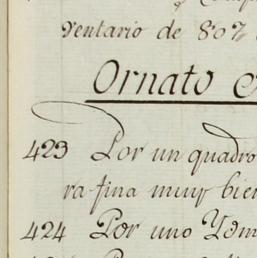 ventario de 807
Ornato
423 Por un quadro
ra fina muy bien
424 Por uno Ydm